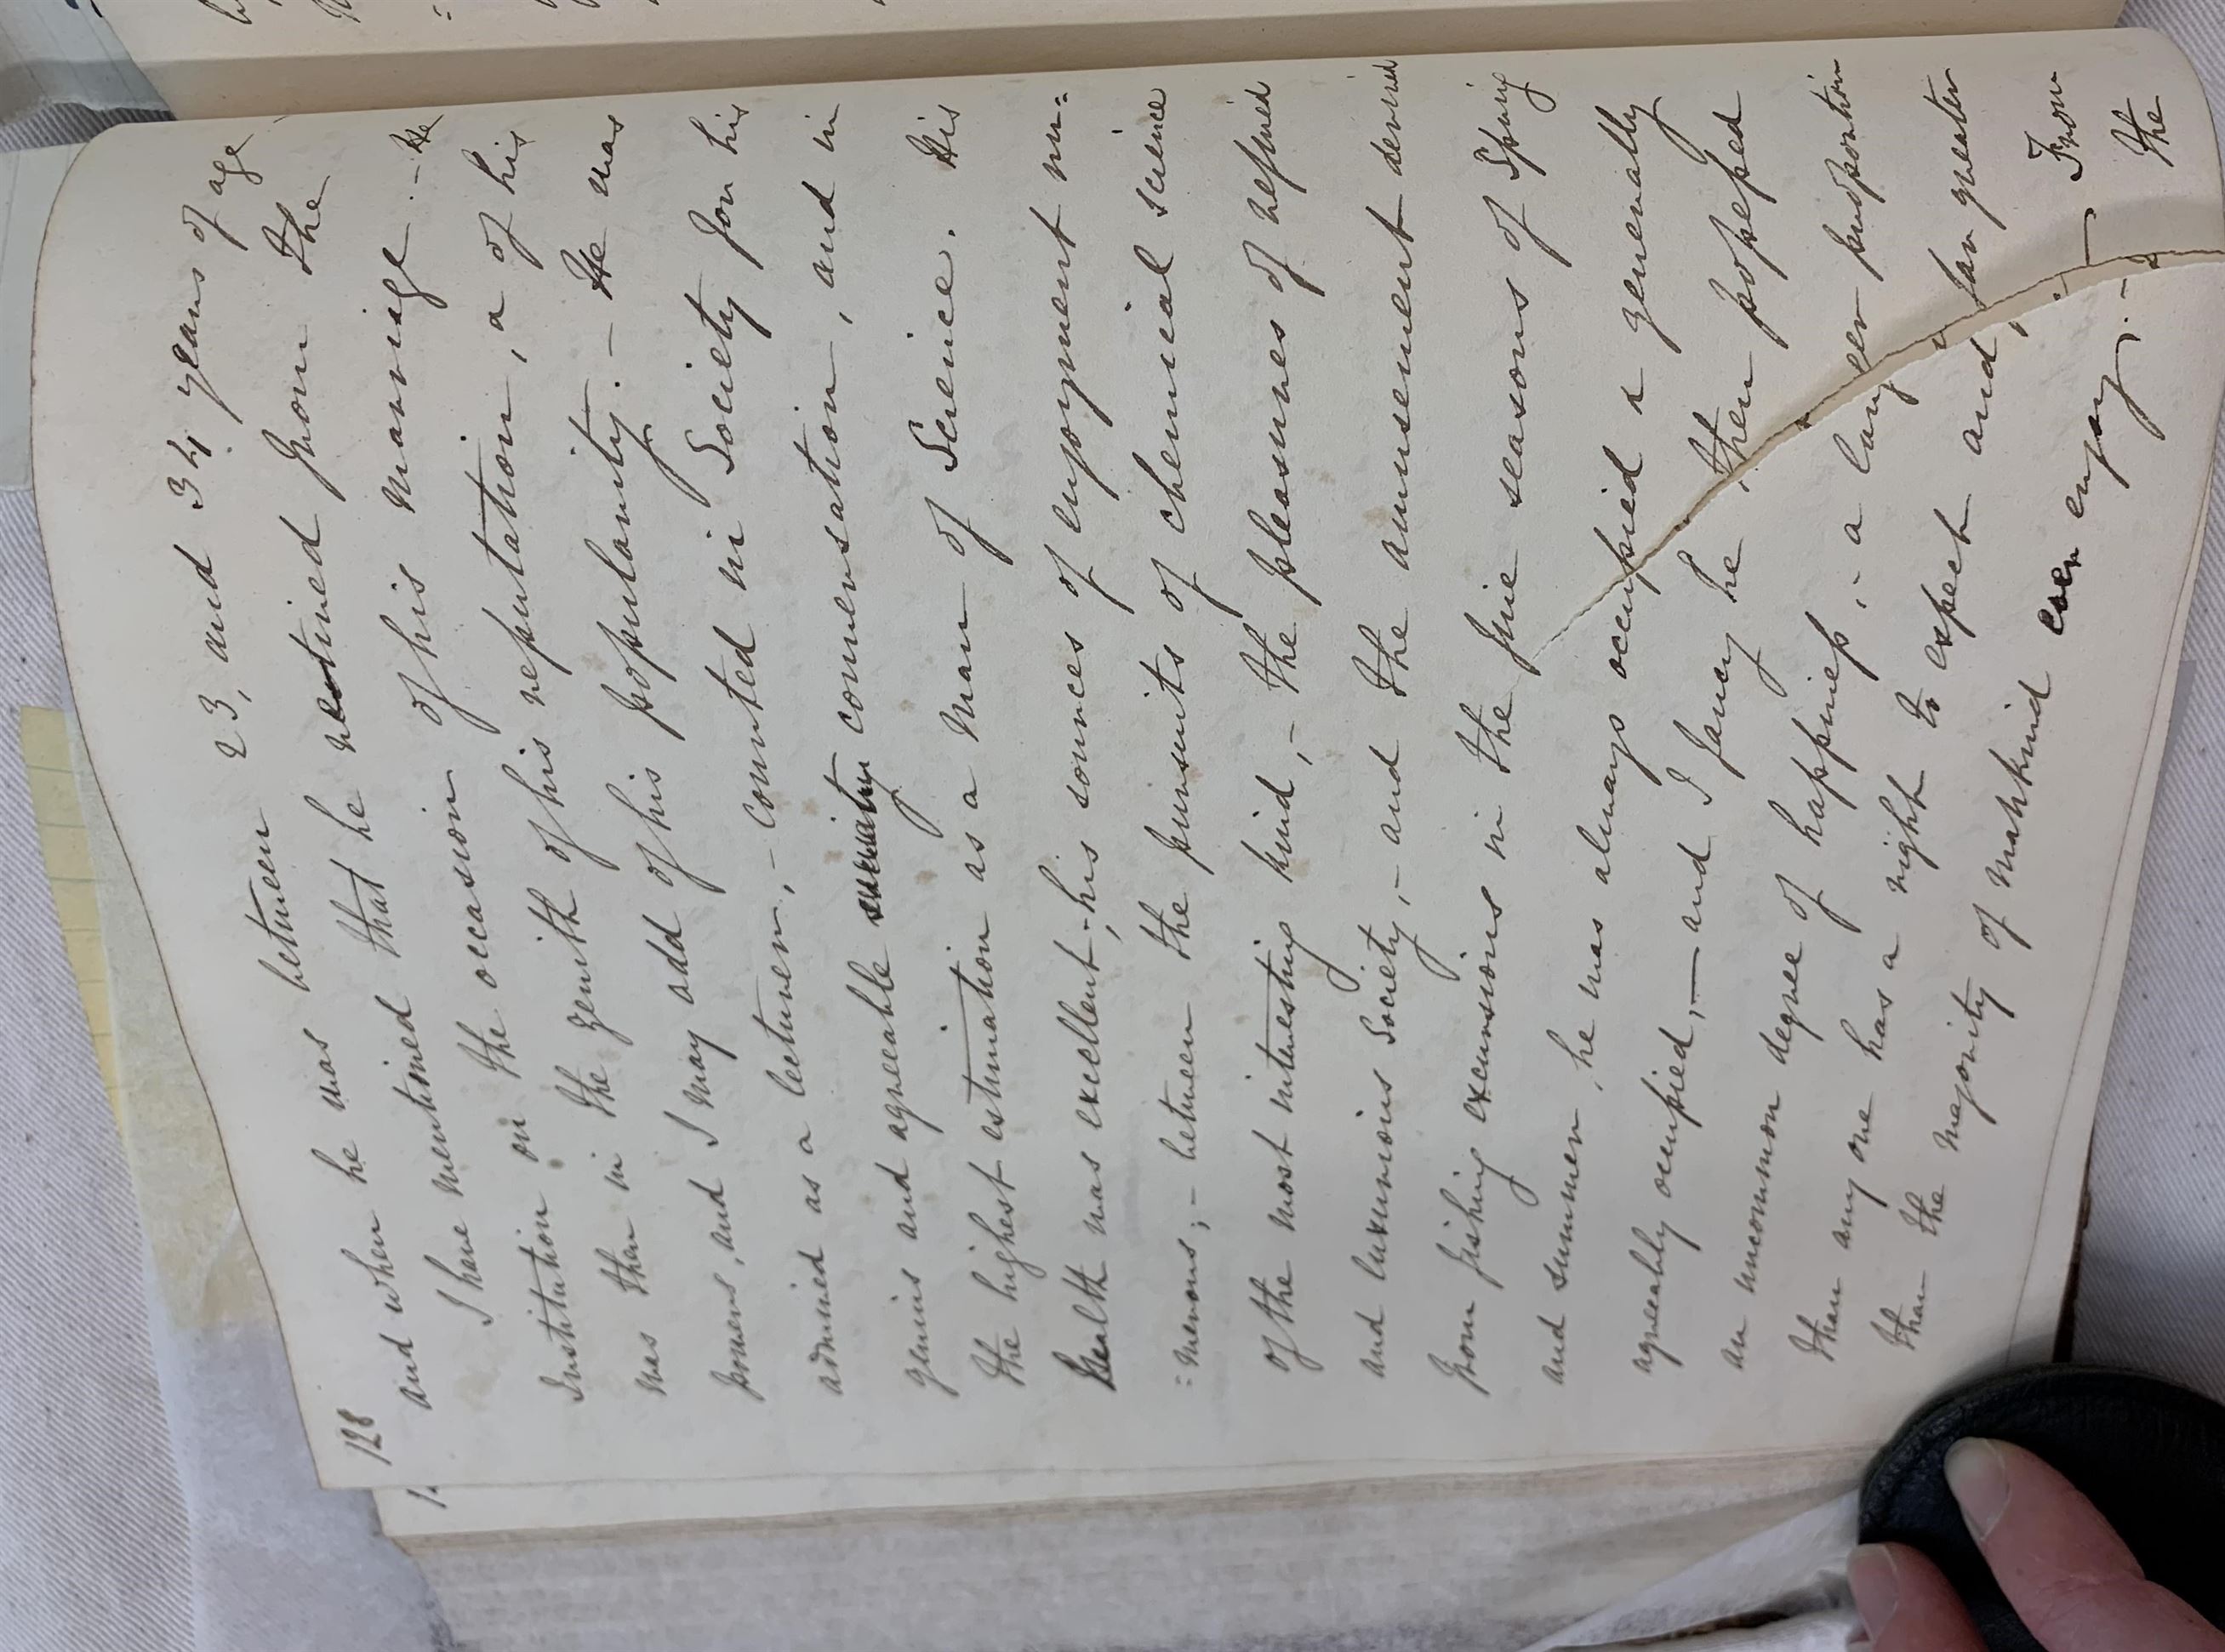 128
and when he was between 23, and 34 years of age
I have mentioned that he retired from the
Institution on the occasion of his marriage. – He
was then in the zenith of his reputation, & of his
powers, and I may add of his popularity. – He was
admired as a lecturer, – courted in Society for his
genius and agreeable conversation, and in
the highest estimation as a Man of Science. His
Health was excellent; – his sources of enjoyment nu=
=merous; – between the pursuits of chemical science
of the most interesting kind, – the pleasures of refined
and luxurious Society, – and the amusement derived
from fishing excursions in the fine seasons of Spring
and summer, he was always occupied & generally
agreeably occupied, – and I fancy he, then possessed
an uncommon degree of happiness; – a larger proportion
than any one has a right to expect and, far greater
than the majority of mankind ever enjoy. – From
the